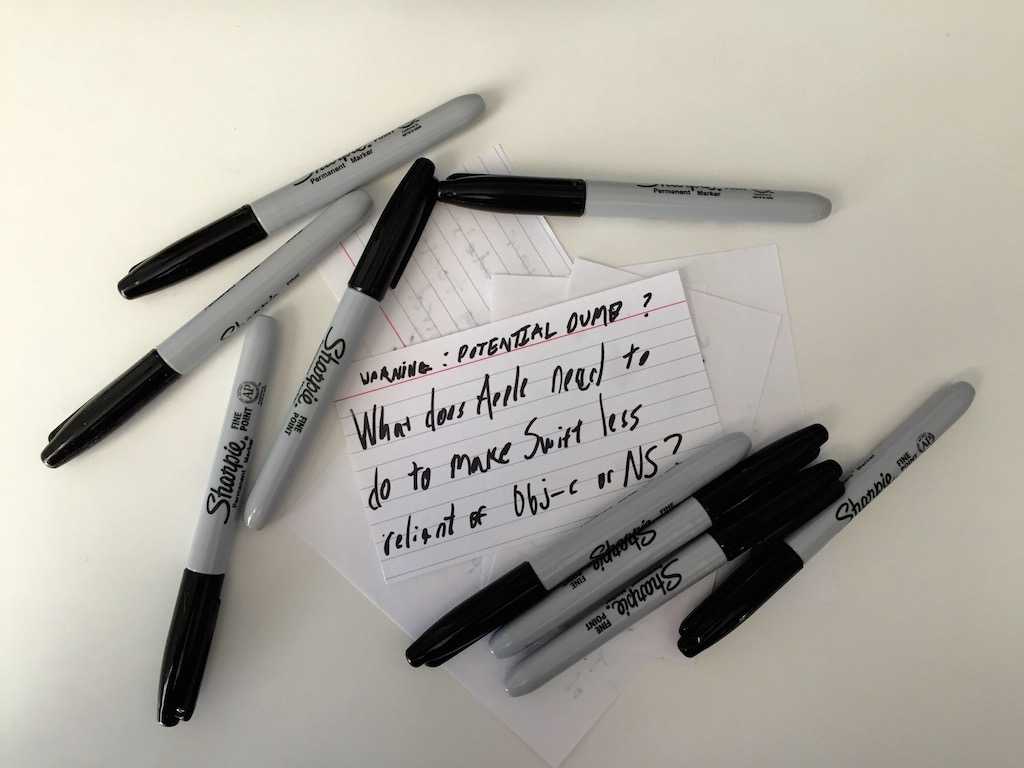 Sharpie.
Permanent Marker
Sharpie.
Permanent Marker
WARNING: POTENTIAL DUMB ?
What does Apple need to
do to make Swift less
reliant of Obj-c or NS?
Sharpie.
FINE
POINT
Sharpie.
FINE
POINT
AP
Permanent Marker
Sharpie.
FINE
Sharpie.
FINE
POINT
Sharpie.
FINE
POINT
AP